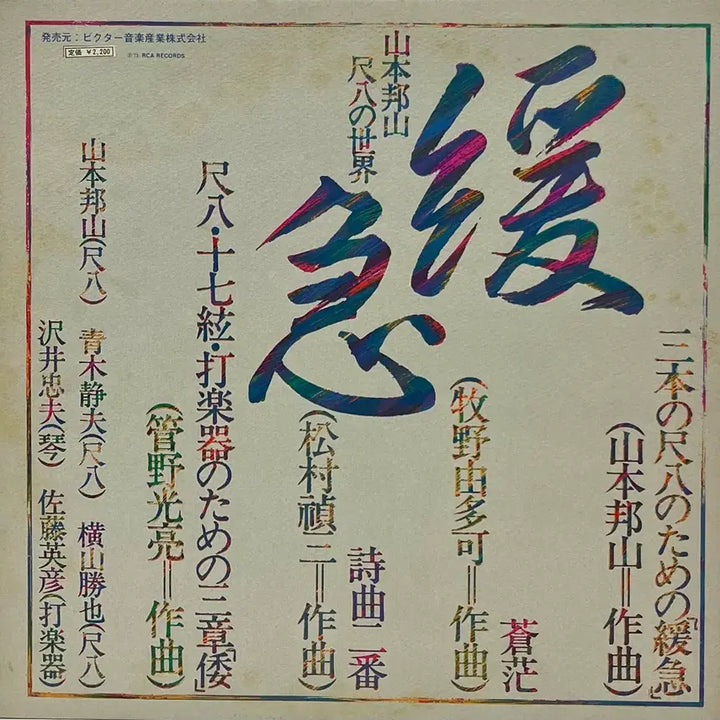 発売元：ビクター音楽産業株式会社
定価 ¥2,200
RCA RECORDS
緩急
山本邦山
尺八の世界
三本の尺八のための「緩急」
(山本邦山＝作曲)
蒼茫
(牧野由多可＝作曲)
詩曲二番
(松村禎三＝作曲)
尺八・十七絃・打楽器のための三章「倭」
(管野光亮＝作曲)
山本邦山(尺八) 青木静夫(尺八) 横山勝也(尺八)
沢井忠夫(琴) 佐藤英彦(打楽器)